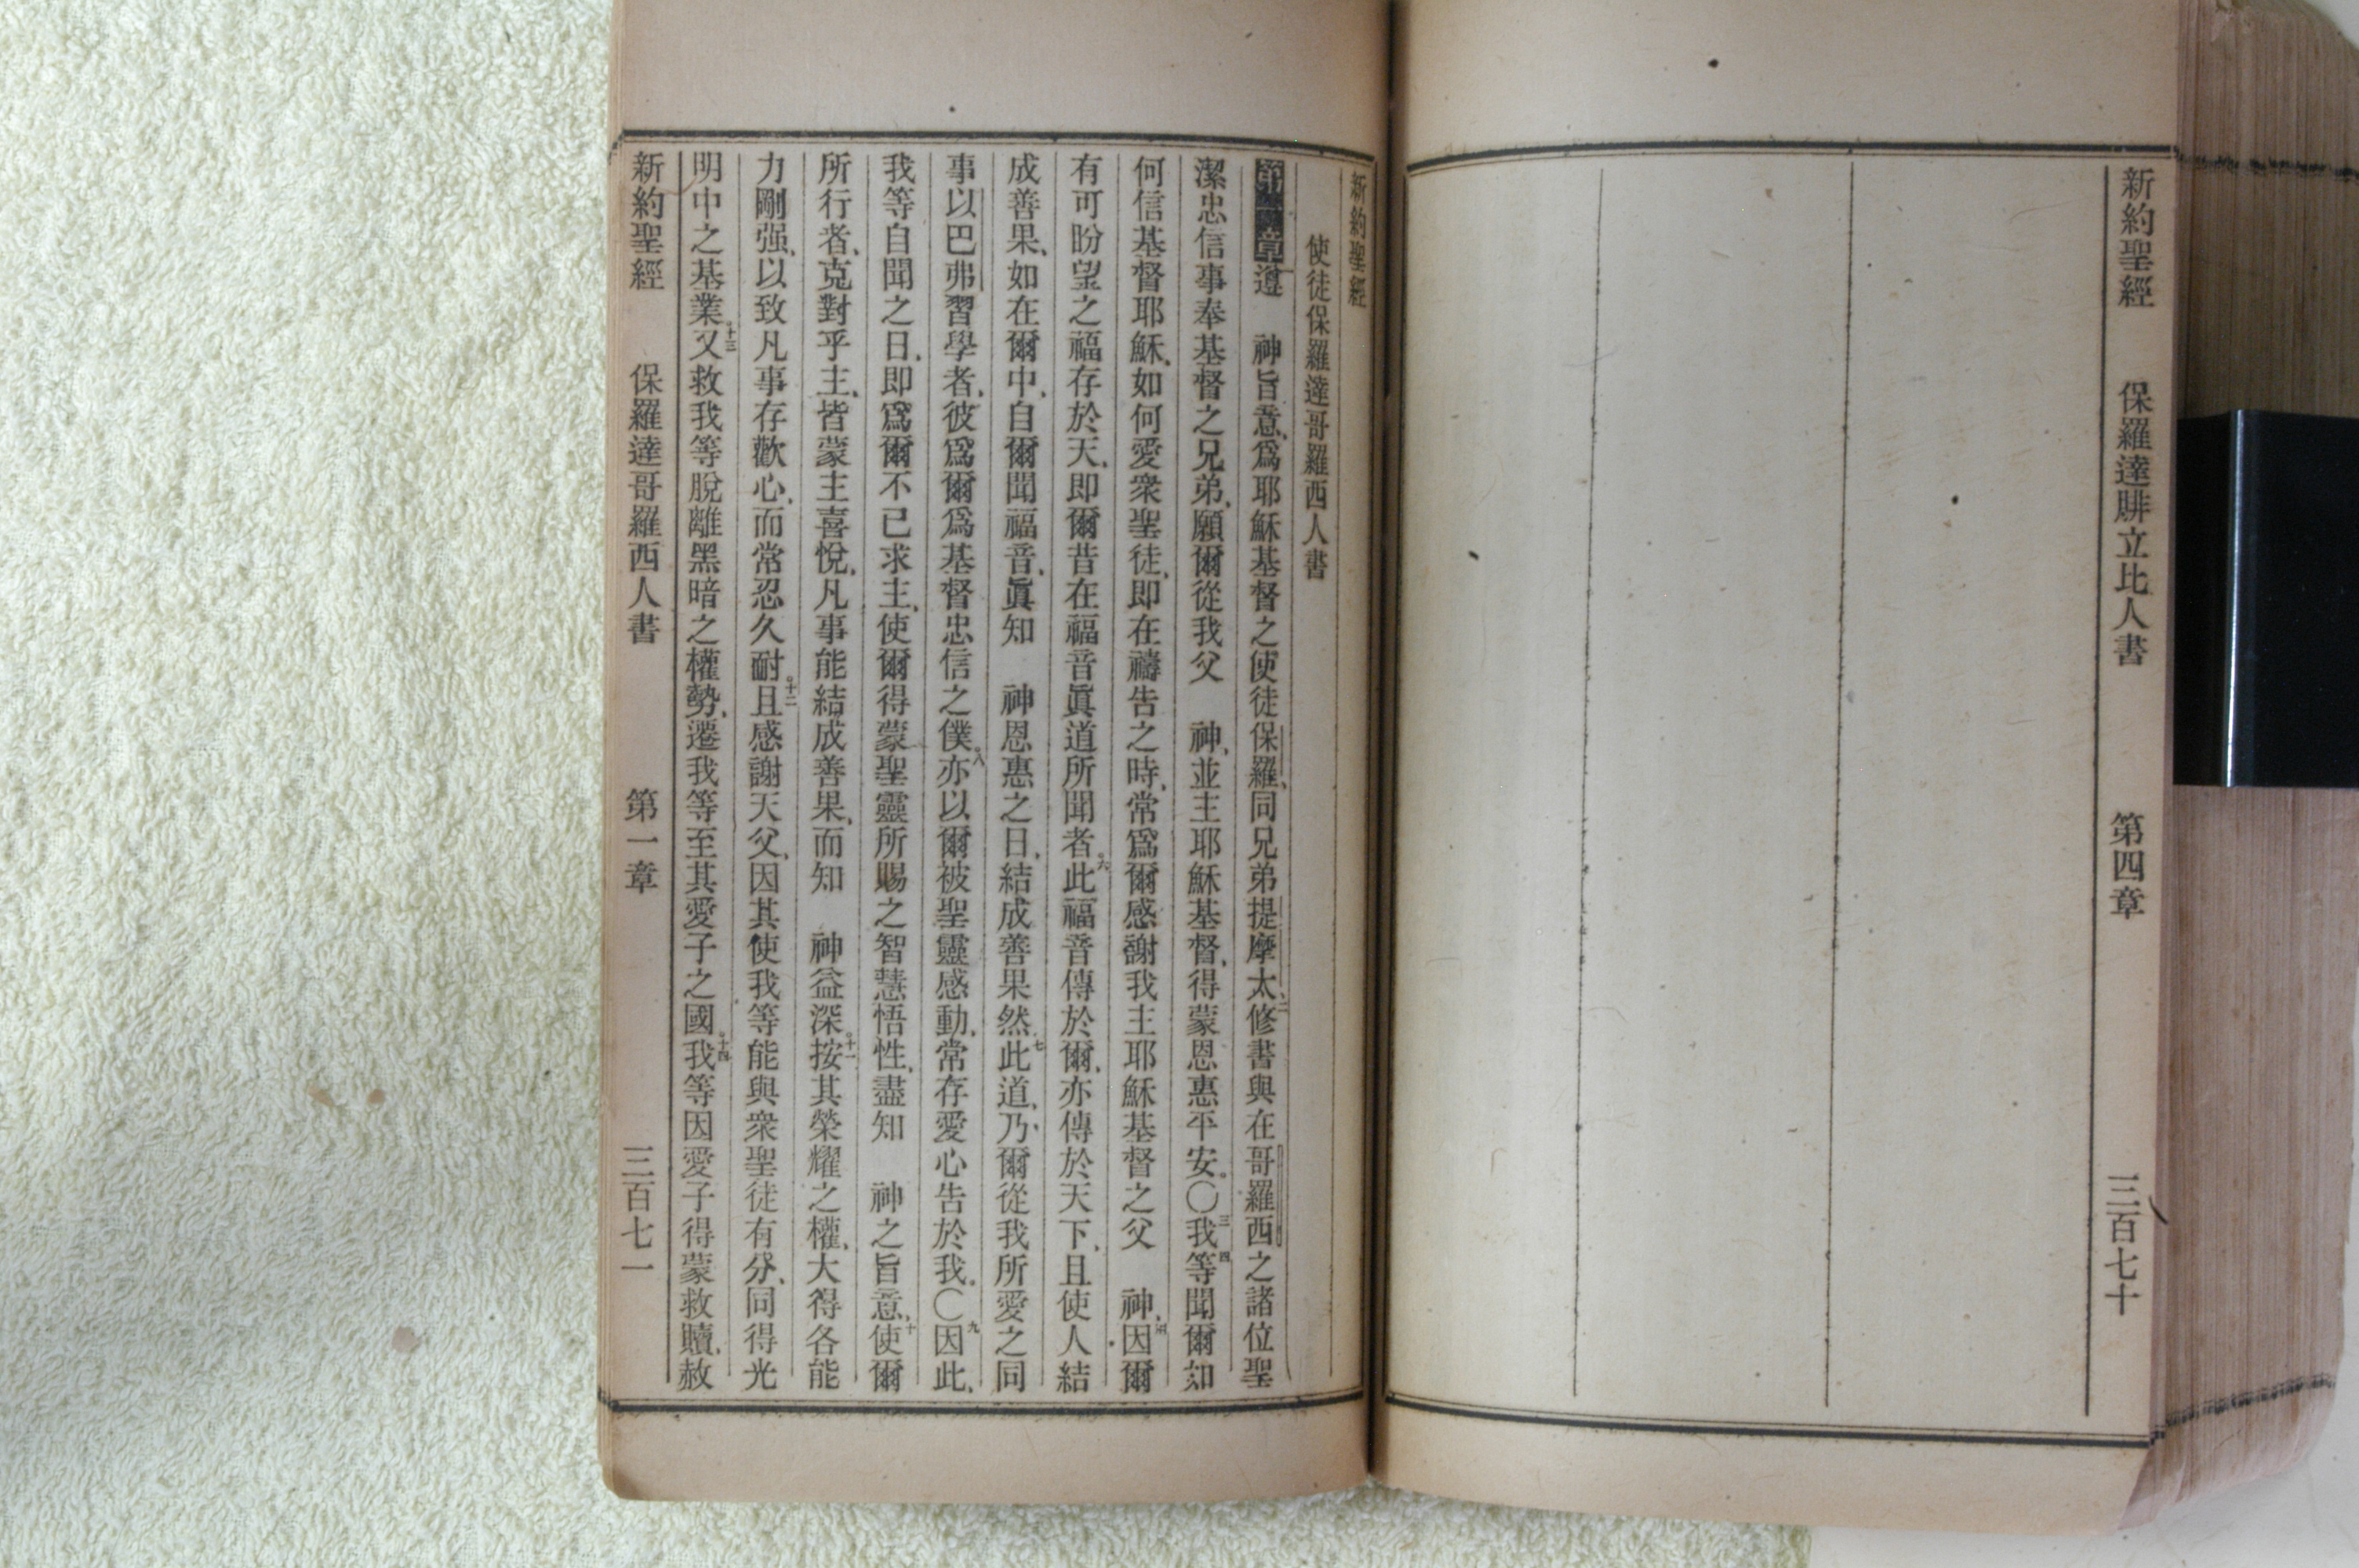 新約聖經 保羅達腓立比人書 第四章 三百七十
新約聖經
使徒保羅達哥羅西人書
第一章遵 神旨意、爲耶穌基督之使徒保羅、同兄弟提摩太、二修書與在哥羅西之諸位聖
潔忠信事奉基督之兄弟、願爾從我父 神、並主耶穌基督、得蒙恩惠平安。〇三我四等聞爾如
何信基督耶穌、如何愛衆聖徒、即在禱告之時、常爲爾感謝我主耶穌基督之父 神、五因爾
有可盼望之福存於天、即爾昔在福音眞道所聞者。六此福音傳於爾、亦傳於天下、且使人結
成善果、如在爾中、自爾聞福音、眞知 神恩惠之日、結成善果然七此道、乃爾從我所愛之同
事以巴弗習學者、彼爲爾爲基督忠信之僕。八亦以爾被聖靈感動、常存愛心告於我。〇九因此、
我等自聞之日、即爲爾不已求主、使爾得蒙聖靈所賜之智慧悟性、盡知 神之旨意、十使爾
所行者、克對乎主、皆蒙主喜悅、凡事能結成善果、而知 神益深。十一按其榮耀之權、大得各能
力剛强、以致凡事存歡心、而常忍久耐。十二且感謝天父、因其使我等能與衆聖徒有分、同得光
明中之基業。十三又救我等脫離黑暗之權勢、遷我等至其愛子之國。十四我等因愛子得蒙救贖、赦
新約聖經 保羅達哥羅西人書 第一章 三百七一